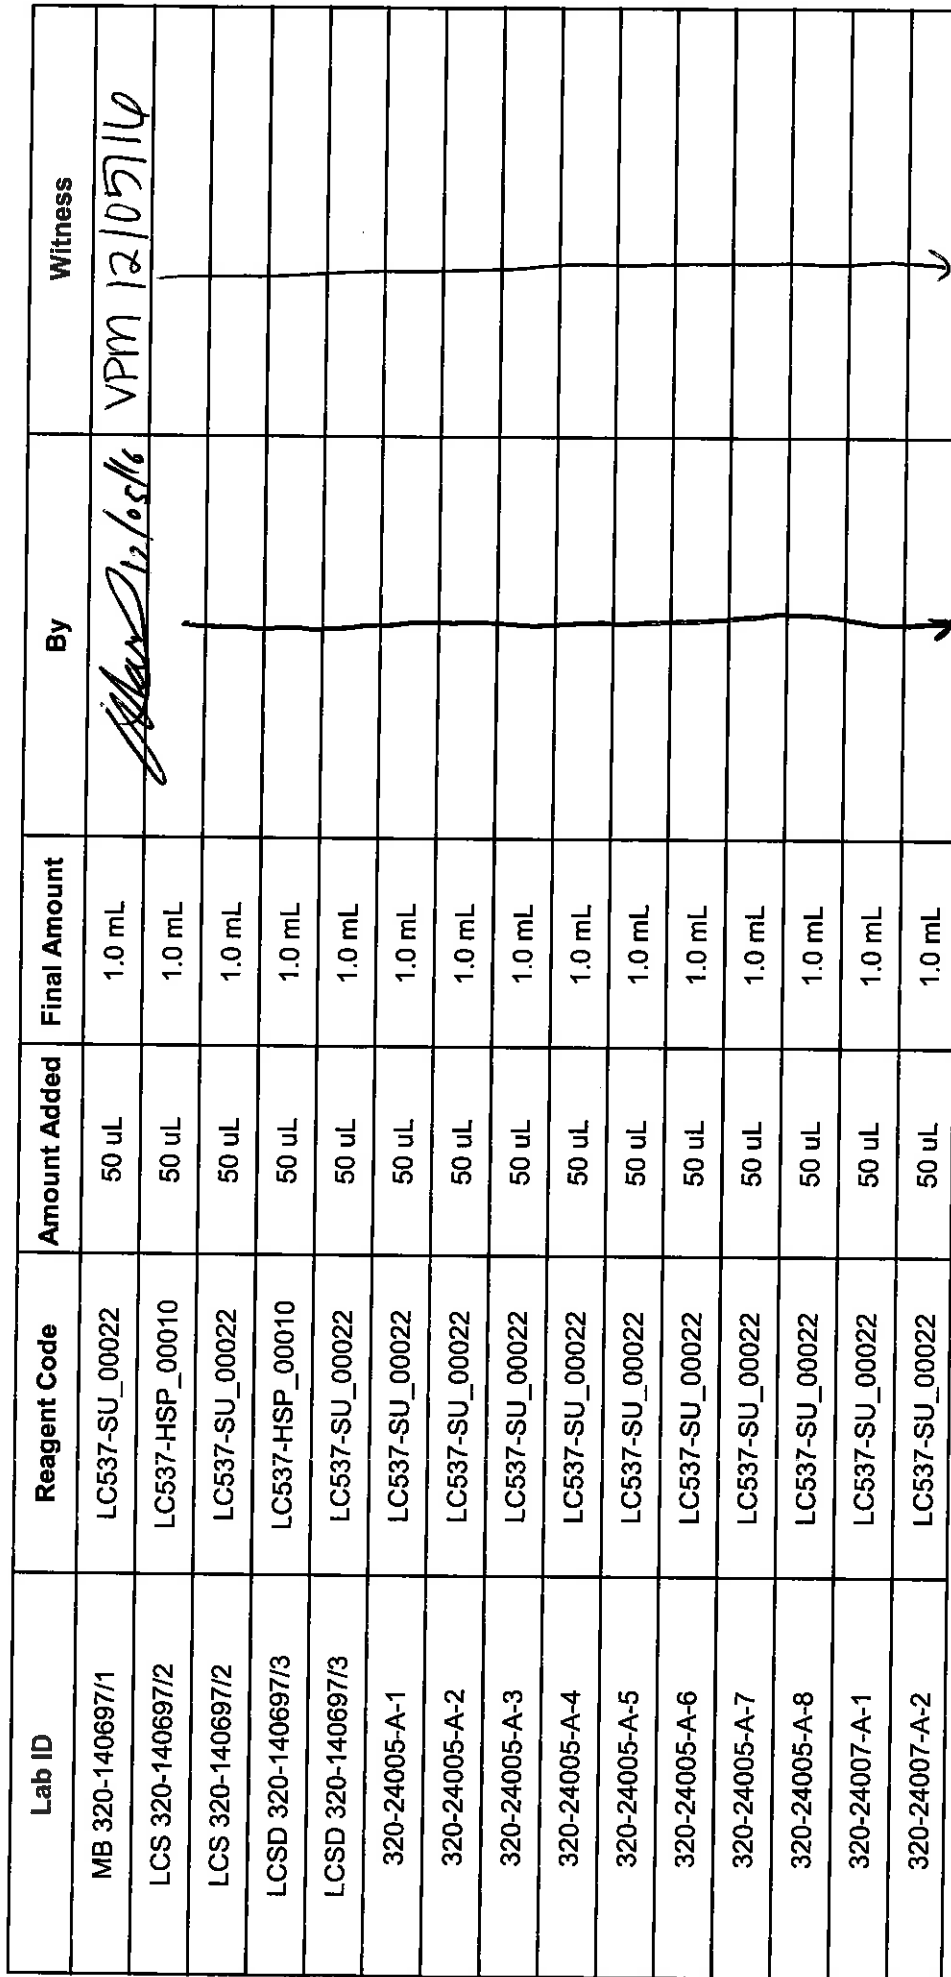 Lab ID Reagent Code Amount Added Final Amount By Witness
MB 320-140697/1 LC537-SU_00022 50 uL 1.0 mL 12/05/16 VPM 12/05/16
LCS 320-140697/2 LC537-HSP_00010 50 uL 1.0 mL
LCS 320-140697/2 LC537-SU_00022 50 uL 1.0 mL
LCSD 320-140697/3 LC537-HSP_00010 50 uL 1.0 mL
LCSD 320-140697/3 LC537-SU_00022 50 uL 1.0 mL
320-24005-A-1 LC537-SU_00022 50 uL 1.0 mL
320-24005-A-2 LC537-SU_00022 50 uL 1.0 mL
320-24005-A-3 LC537-SU_00022 50 uL 1.0 mL
320-24005-A-4 LC537-SU_00022 50 uL 1.0 mL
320-24005-A-5 LC537-SU_00022 50 uL 1.0 mL
320-24005-A-6 LC537-SU_00022 50 uL 1.0 mL
320-24005-A-7 LC537-SU_00022 50 uL 1.0 mL
320-24005-A-8 LC537-SU_00022 50 uL 1.0 mL
320-24007-A-1 LC537-SU_00022 50 uL 1.0 mL
320-24007-A-2 LC537-SU_00022 50 uL 1.0 mL